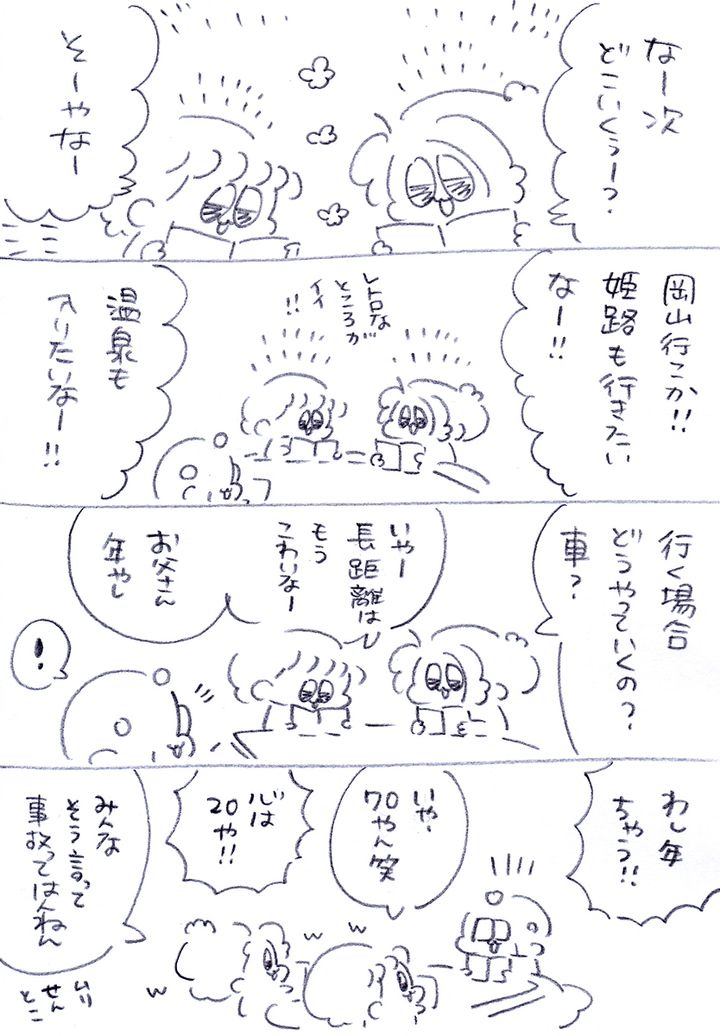 なー次
どこいくぅー?
そーやなー
岡山行こか!!
姫路も行きたい
なー!!
レトロな
ところが
イイ
!!
温泉も
入りたいなー!!
行く場合
どうやっていくの?
車?
いやー
長距離はし
もう
こわいなー
お父さん
年やし
!
わし年
ちゃう!!
いや、
70やん笑
心は
20や!!
みんな
そう言って
事故ってはんねん
w
w
w
ムリ
せん
とこ